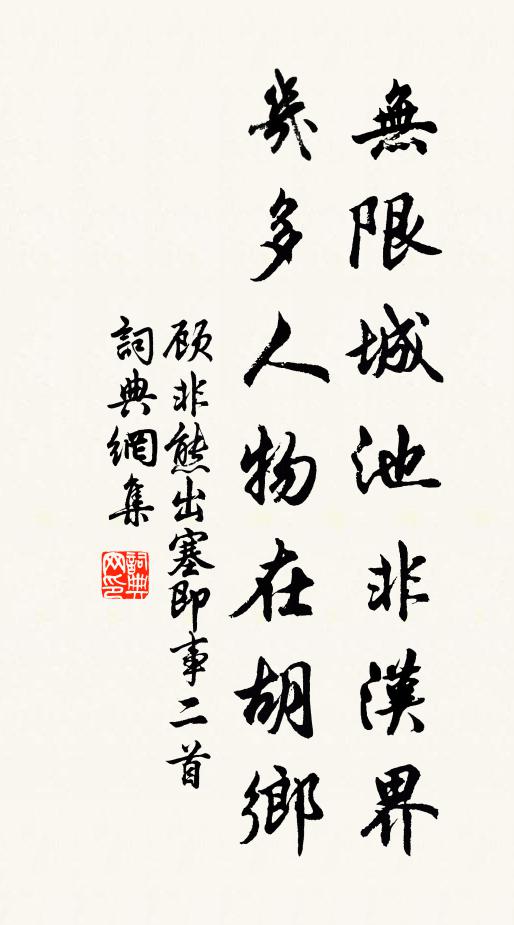 無限城池非漢界
幾多人物在胡鄉
顧非熊出塞即事二首
詞典網集
詞典網印